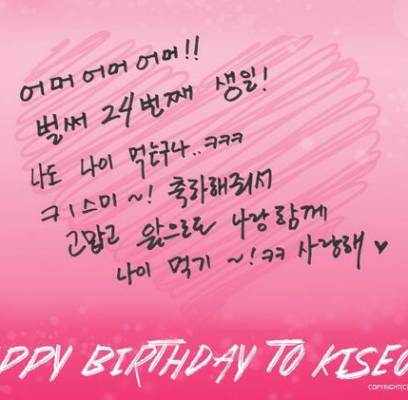 어머어머 어머!!
벌써 24번째 생일!
나도 나이 먹는구나..ㅋㅋㅋ
ㅋㅣ스미~! 축하해줘서
고맙고 앞으로도 나랑함께
나이 먹기 ~!ㅋㅋ 사랑해♥
PPY BIRTHDAY TO KISEO
COPYRIGHT(C